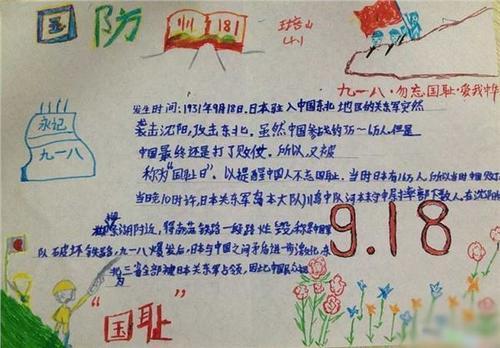 国防
181
九一八·勿忘国耻·爱我中华
发生时间:1931年9月18日,日本驻入中国东北地区的关东军突然
袭击沈阳,攻击东北。虽然中国参战约 万人,但是
中国最终还是打了败仗。所以,又被
称为"国耻日"。以提醒中国人不忘国耻。当时日本有 万人,所以当时中国
当晚10时许,日本关东军岛本大队川岛中队河本末守中尉率部下数人,在沈阳
湖附近,将南满铁路一段路 毁,称是中国军
队破坏铁路。九一八爆发后,日本与中国之间矛盾进一步激化,东
北三省全部被日本关东军占领,因此中国民众
永记
九一八
9.18
"国耻"